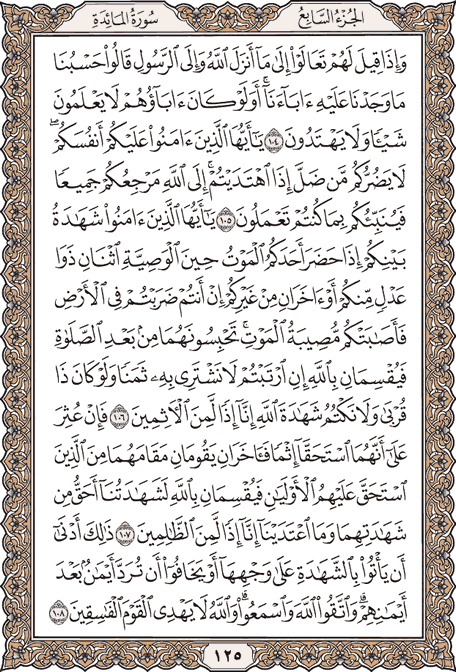 الجزء السابع
سورة المائدة
وَإِذَا قِيلَ لَهُمْ تَعَالَوْا۟ إِلَىٰ مَآ أَنزَلَ ٱللَّهُ وَإِلَى ٱلرَّسُولِ قَالُوا۟ حَسْبُنَا
مَا وَجَدْنَا عَلَيْهِ ءَابَآءَنَآ ۚ أَوَلَوْ كَانَ ءَابَآؤُهُمْ لَا يَعْلَمُونَ
شَيْـًٔا وَلَا يَهْتَدُونَ ١٠٤ يَـٰٓأَيُّهَا ٱلَّذِينَ ءَامَنُوا۟ عَلَيْكُمْ أَنفُسَكُمْ ۖ
لَا يَضُرُّكُم مَّن ضَلَّ إِذَا ٱهْتَدَيْتُمْ ۚ إِلَى ٱللَّهِ مَرْجِعُكُمْ جَمِيعًا
فَيُنَبِّئُكُم بِمَا كُنتُمْ تَعْمَلُونَ ١٠٥ يَـٰٓأَيُّهَا ٱلَّذِينَ ءَامَنُوا۟ شَهَـٰدَةُ
بَيْنِكُمْ إِذَا حَضَرَ أَحَدَكُمُ ٱلْمَوْتُ حِينَ ٱلْوَصِيَّةِ ٱثْنَانِ ذَوَا
عَدْلٍ مِّنكُمْ أَوْ ءَاخَرَانِ مِنْ غَيْرِكُمْ إِنْ أَنتُمْ ضَرَبْتُمْ فِى ٱلْأَرْضِ
فَأَصَـٰبَتْكُم مُّصِيبَةُ ٱلْمَوْتِ ۚ تَحْبِسُونَهُمَا مِنۢ بَعْدِ ٱلصَّلَوٰةِ
فَيُقْسِمَانِ بِٱللَّهِ إِنِ ٱرْتَبْتُمْ لَا نَشْتَرِى بِهِۦ ثَمَنًا وَلَوْ كَانَ ذَا
قُرْبَىٰ ۙ وَلَا نَكْتُمُ شَهَـٰدَةَ ٱللَّهِ إِنَّآ إِذًا لَّمِنَ ٱلْـَٔاثِمِينَ ١٠٦ فَإِنْ عُثِرَ
عَلَىٰٓ أَنَّهُمَا ٱسْتَحَقَّآ إِثْمًا فَـَٔاخَرَانِ يَقُومَانِ مَقَامَهُمَا مِنَ ٱلَّذِينَ
ٱسْتَحَقَّ عَلَيْهِمُ ٱلْأَوْلَيَـٰنِ فَيُقْسِمَانِ بِٱللَّهِ لَشَهَـٰدَتُنَآ أَحَقُّ مِن
شَهَـٰدَتِهِمَا وَمَا ٱعْتَدَيْنَآ إِنَّآ إِذًا لَّمِنَ ٱلظَّـٰلِمِينَ ١٠٧ ذَٰلِكَ أَدْنَىٰٓ
أَن يَأْتُوا۟ بِٱلشَّهَـٰدَةِ عَلَىٰ وَجْهِهَآ أَوْ يَخَافُوٓا۟ أَن تُرَدَّ أَيْمَـٰنٌۢ بَعْدَ
أَيْمَـٰنِهِمْ ۗ وَٱتَّقُوا۟ ٱللَّهَ وَٱسْمَعُوا۟ ۗ وَٱللَّهُ لَا يَهْدِى ٱلْقَوْمَ ٱلْفَـٰسِقِينَ ١٠٨
١٢٥